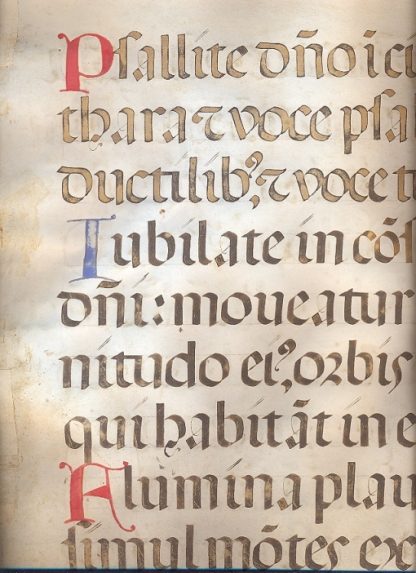 Psallite dño i ci
thara ⁊ voce psa
ductilib⁹, ⁊ voce t
Iubilate in cõs
dñi: moveatur
nitudo ei⁹, orbis
qui habitãt in e
Flumina plau
simul mõtes ex